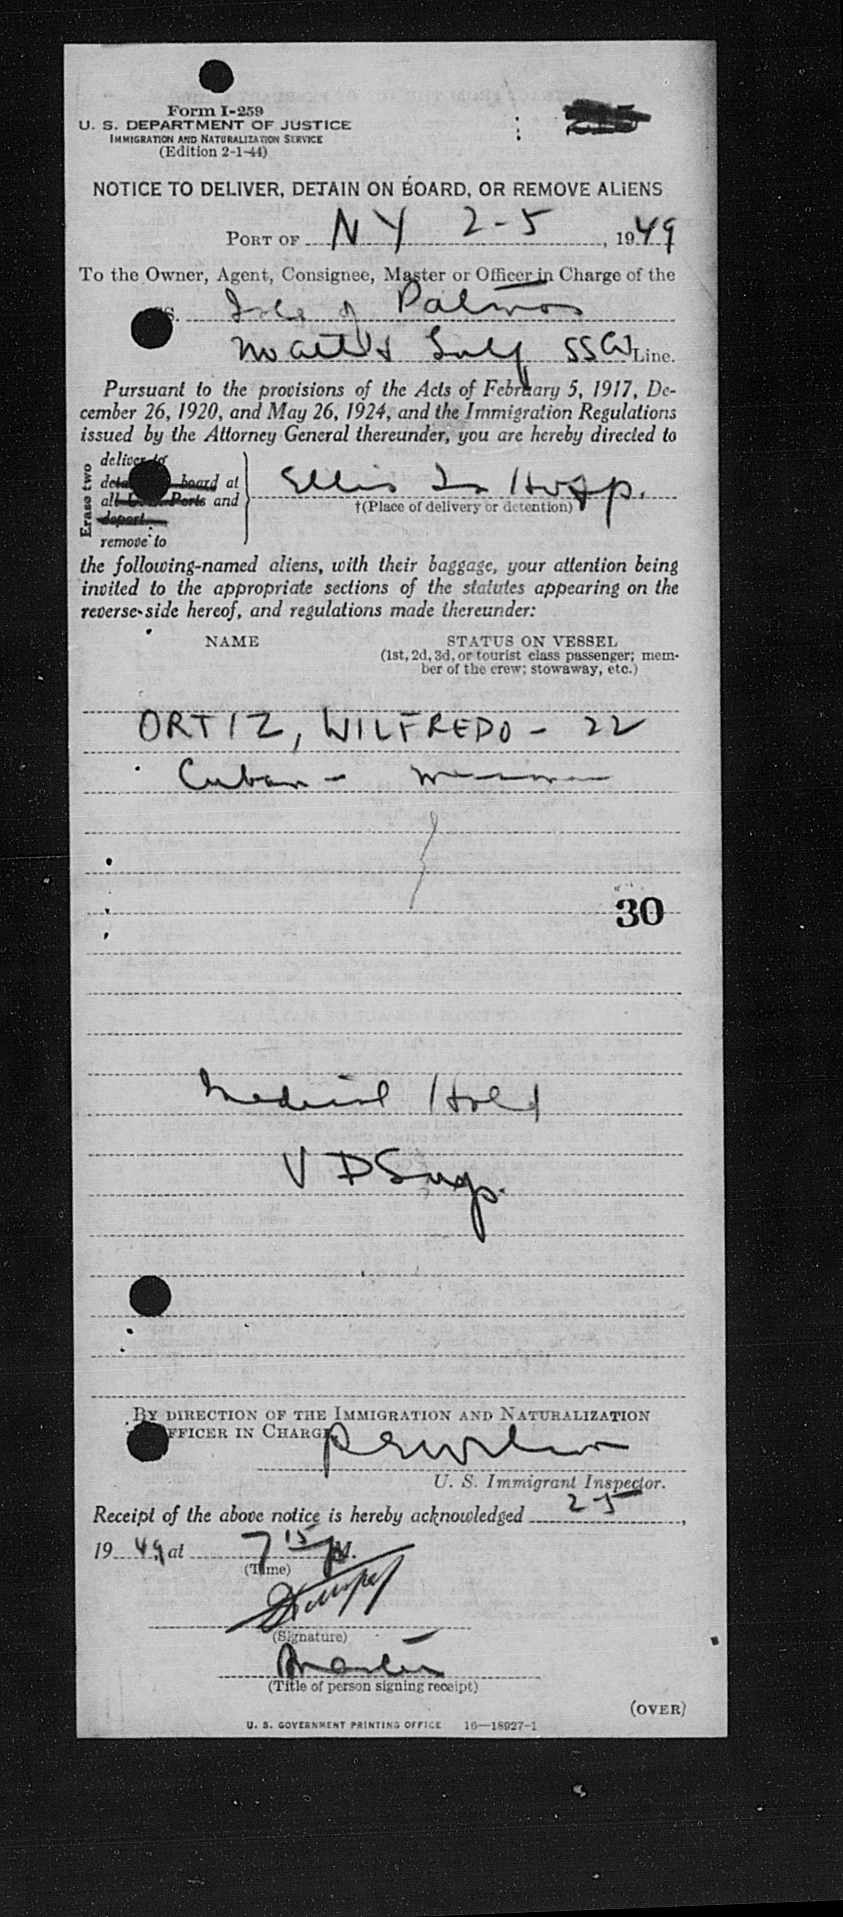 Form I-259
U. S. DEPARTMENT OF JUSTICE
IMMIGRATION AND NATURALIZATION SERVICE
(Edition 2-1-44)
NOTICE TO DELIVER, DETAIN ON BOARD, OR REMOVE ALIENS
PORT OF NY 2-5, 1949
To the Owner, Agent, Consignee, Master or Officer in Charge of the
SS. Isle of Palmos
Gulf SSCo Line.
Pursuant to the provisions of the Acts of February 5, 1917, De-
cember 26, 1920, and May 26, 1924, and the Immigration Regulations
issued by the Attorney General thereunder, you are hereby directed to
Erase two
deliver to
board at
all U. S. Ports and
deport
remove to
Ellis Is Hosp.
†(Place of delivery or detention)
the following-named aliens, with their baggage, your attention being
invited to the appropriate sections of the statutes appearing on the
reverse side hereof, and regulations made thereunder:
NAME STATUS ON VESSEL
(1st, 2d, 3d, or tourist class passenger; mem-
ber of the crew; stowaway, etc.)
ORTIZ, WILFREDO - 22
Cuban -
30
Medical Hold
V D Susp.
BY DIRECTION OF THE IMMIGRATION AND NATURALIZATION
OFFICER IN CHARGE
U. S. Immigrant Inspector.
Receipt of the above notice is hereby acknowledged 2-5,
1949, at 7 15 PM.
(Time)
(Signature)
Master
(Title of person signing receipt)
(OVER)
U. S. GOVERNMENT PRINTING OFFICE 16—18927-1